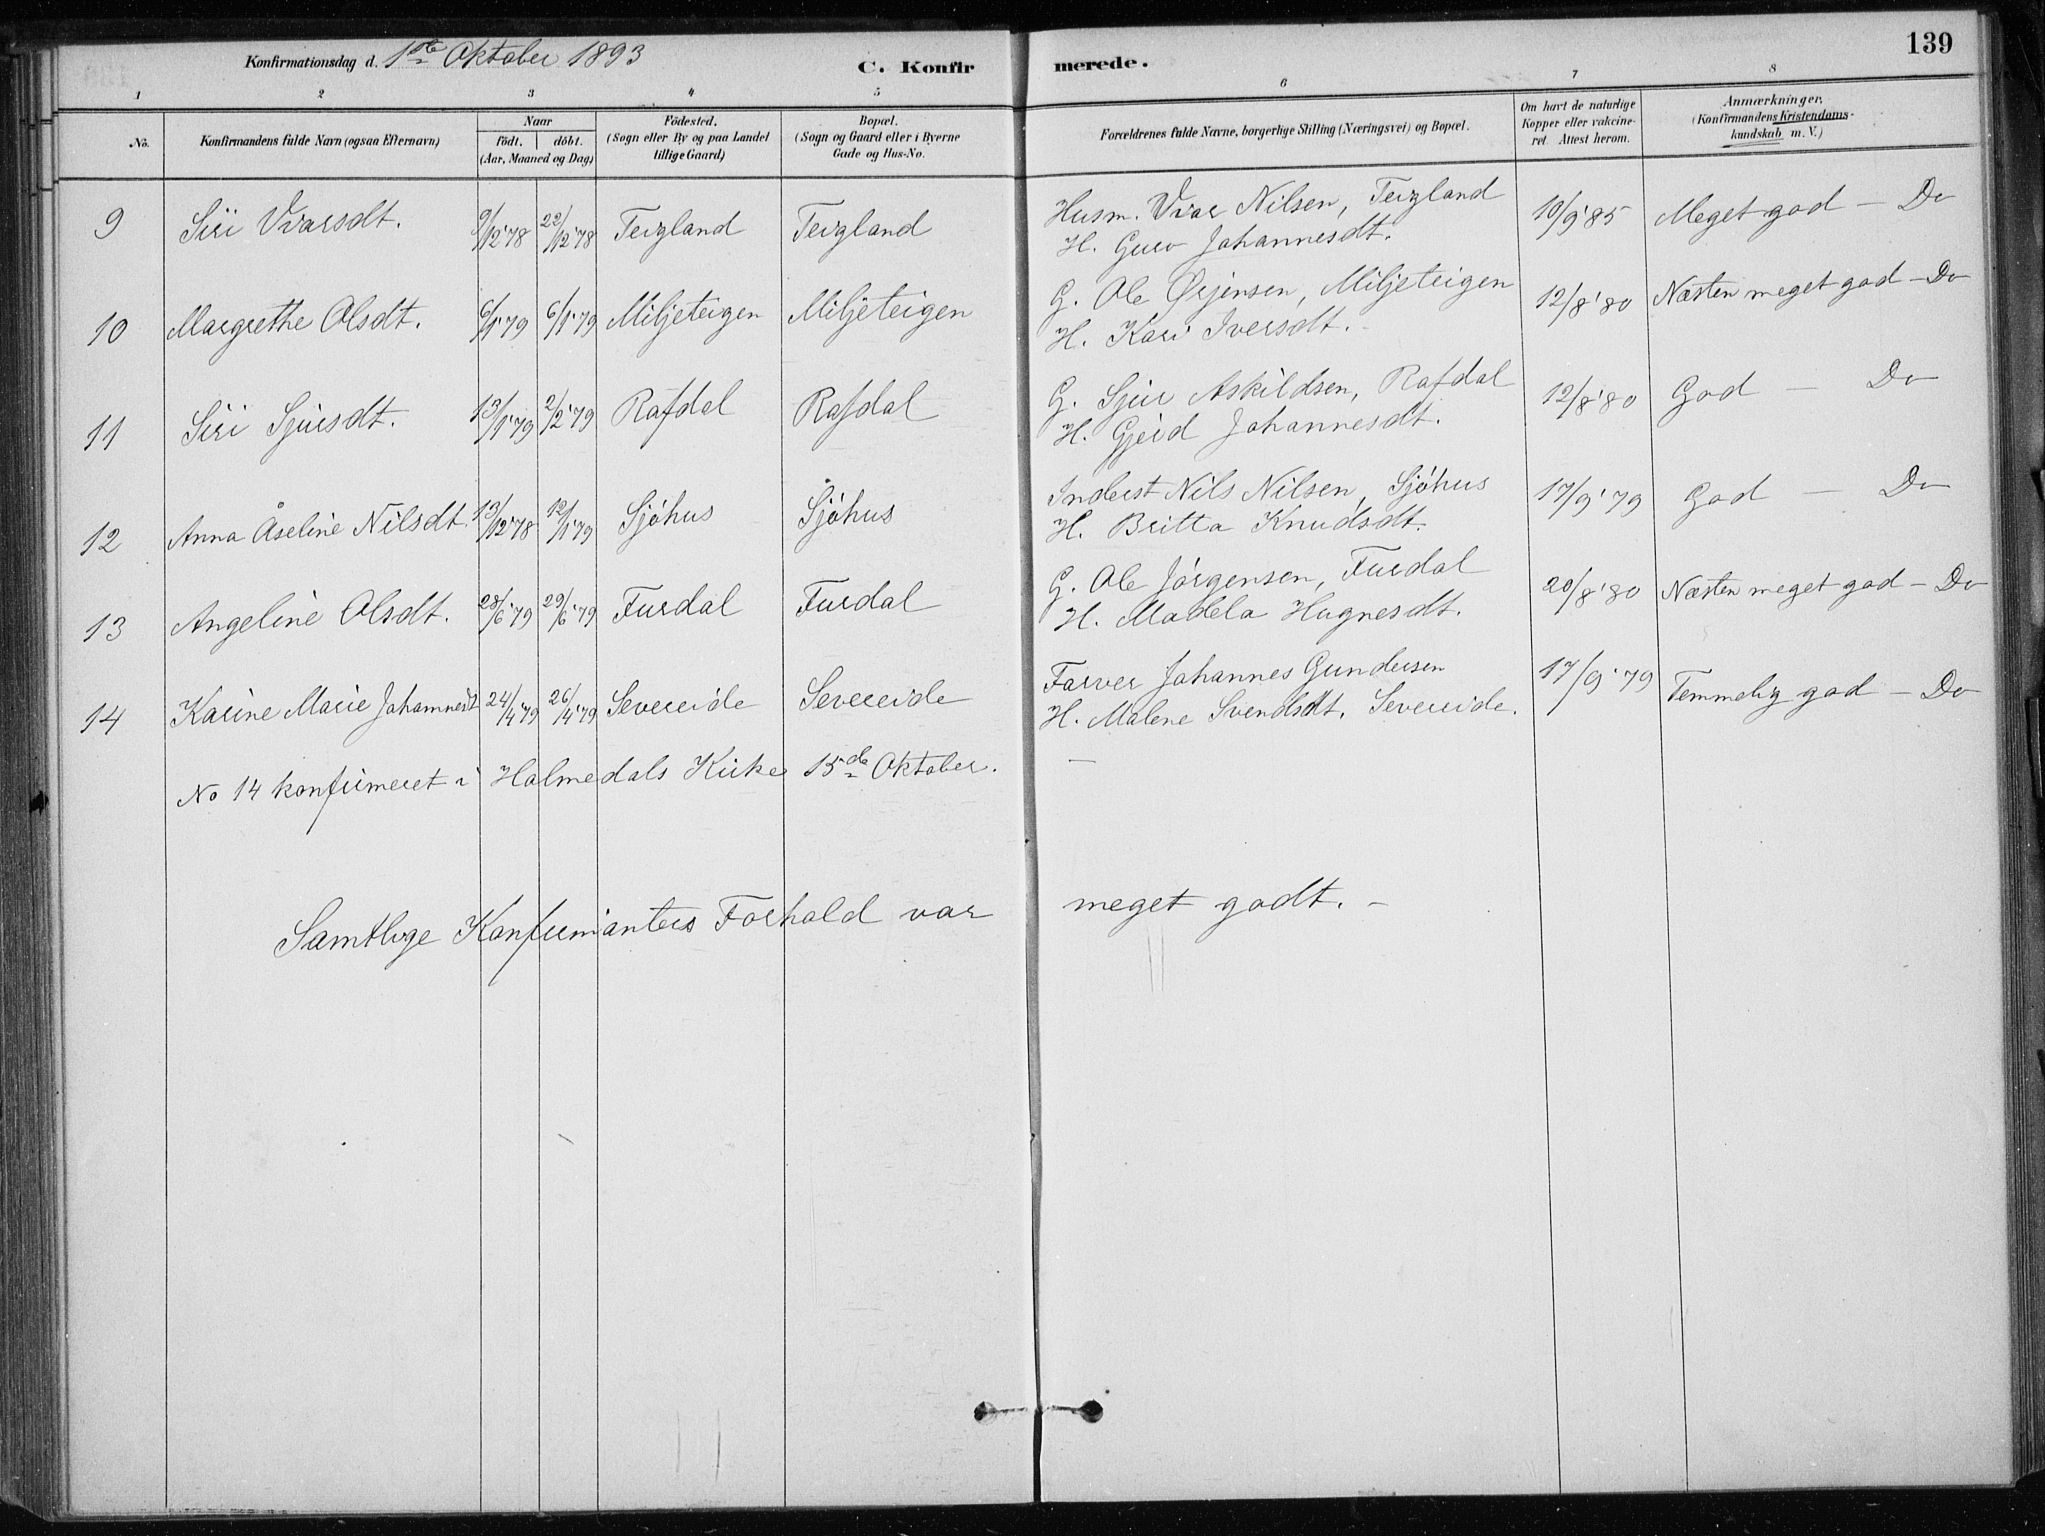 139
Konfirmationsdag d. 1ste Oktober 1893 C. Konfirmerede.
1 2 3 4 5 6 7 8
No. Konfirmandens fulde Navn (ogsaa Efternavn) Naar født. døbt. (Aar, Maaned og Dag) Fødested. (Sogn eller By og paa Landet tillige Gaard) Bopæl. (Sogn og Gaard eller i Byerne Gade og Hus-No. Forældrenes fulde Navne, borgerlige Stilling (Næringsvei) og Bopæl. Om havt de naturlige Kopper eller vakcineret. Attest herom. Anmærkninger, (Konfirmandens Kristendomskundskab m. V.)
9 Siri Ivarsdt. 9/12'78 22/12'78 Teigland Teigland Husm. Ivar Nilsen, Teigland 10/9'85 Meget god — Do
H. Guro Johannesdt.
10 Margrethe Olsdt. 6/1'79 6/1'79 Miljeteigen Miljeteigen G. Ole Ørjensen, Miljeteigen 12/8'80 Næsten meget god — Do
H. Kari Iversdt.
11 Siri Sjursdt. 13/1'79 2/2'79 Rafdal Rafdal G. Sjur Askildsen, Rafdal 12/8'80 God — Do
H. Gjerd Johannesdt.
12 Anna Åseline Nilsdt. 13/12'78 12/1'79 Sjøhus Sjøhus Inderst Nils Nilsen, Sjøhus 17/9'79 God — Do
H. Britta Knudsdt.
13 Angeline Olsdt. 28/6'79 29/6'79 Furdal Furdal G. Ole Jørgensen, Furdal 20/8'80 Næsten meget god — Do
H. Madela Hagnesdt.
14 Karine Marie Johannesdt 24/4'79 26/4'79 Severeide Severeide Farver Johannes Gundersen 17/9'79 Temmelig god — Do
H. Malene Svendsdt. Severeide.
No 14 konfirmeret i Holmedals Kirke 15de Oktober. —
Samtlige Konfirmanters Forhold var meget godt. —